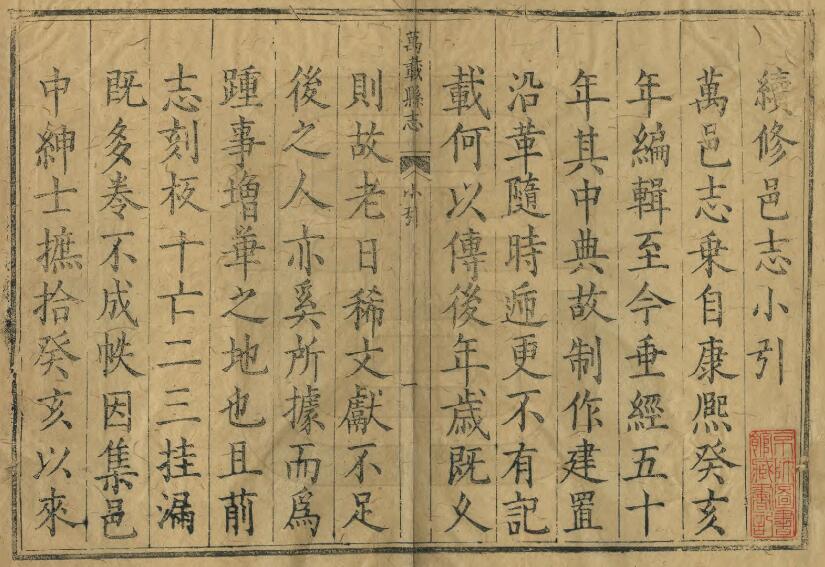 續修邑志小引
萬邑志乗自康熈癸亥
年編輯至今重經五十
年其中典故制作建置
沿革隨時遞更不有記
載何以傳後年歲既乆
萬載縣志
小引
一
則故老日稀文獻不足
後之人亦奚所據而爲
踵事增華之地也且前
志刻板十亡二三挂漏
既多卷不成帙因集邑
中紳士摭拾癸亥以來
京師圖書
館藏書記